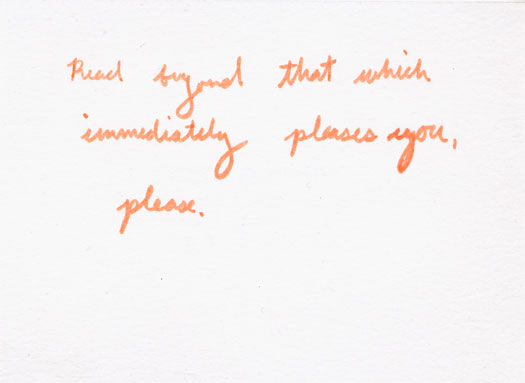 Read beyond that which
immediately pleases you,
please.